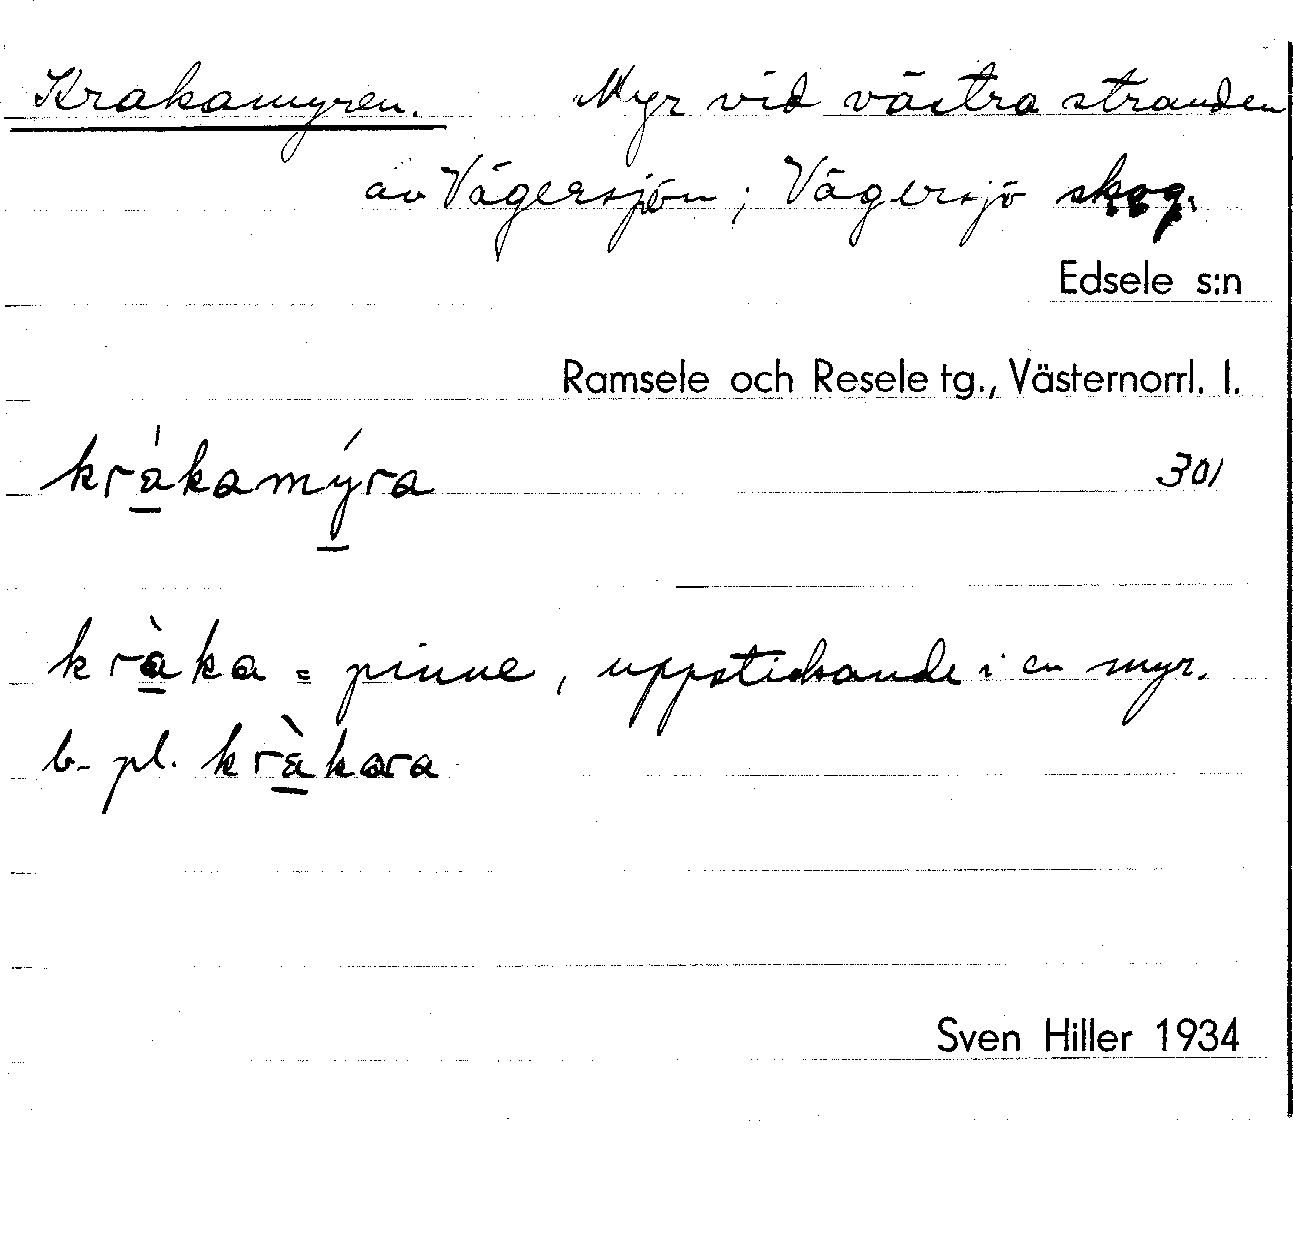 Krakamyren. Myr vid västra stranden
av Vägersjön; Vägersjö skog.
Edsele s:n
Ramsele och Resele tg., Västernorrl. l.
krákamýra 301
kràka = pinne, uppstickande i en myr.
b. pl. kràkara
Sven Hiller 1934